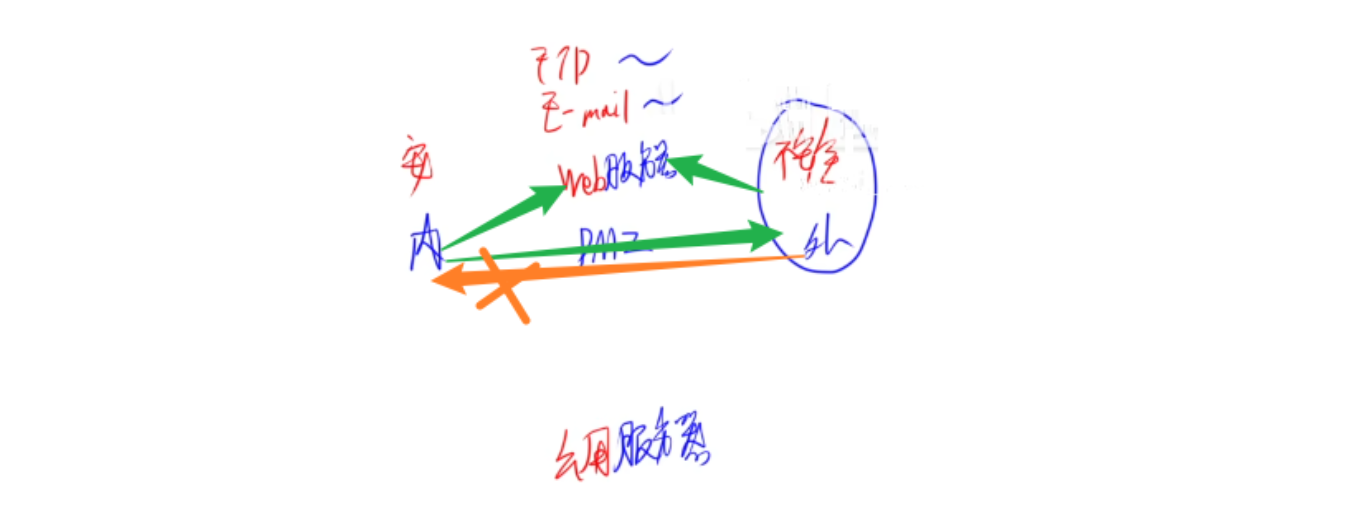 FTP ~
E-mail ~
安
Web服务器
不安全
内
DMZ
外
公用服务器